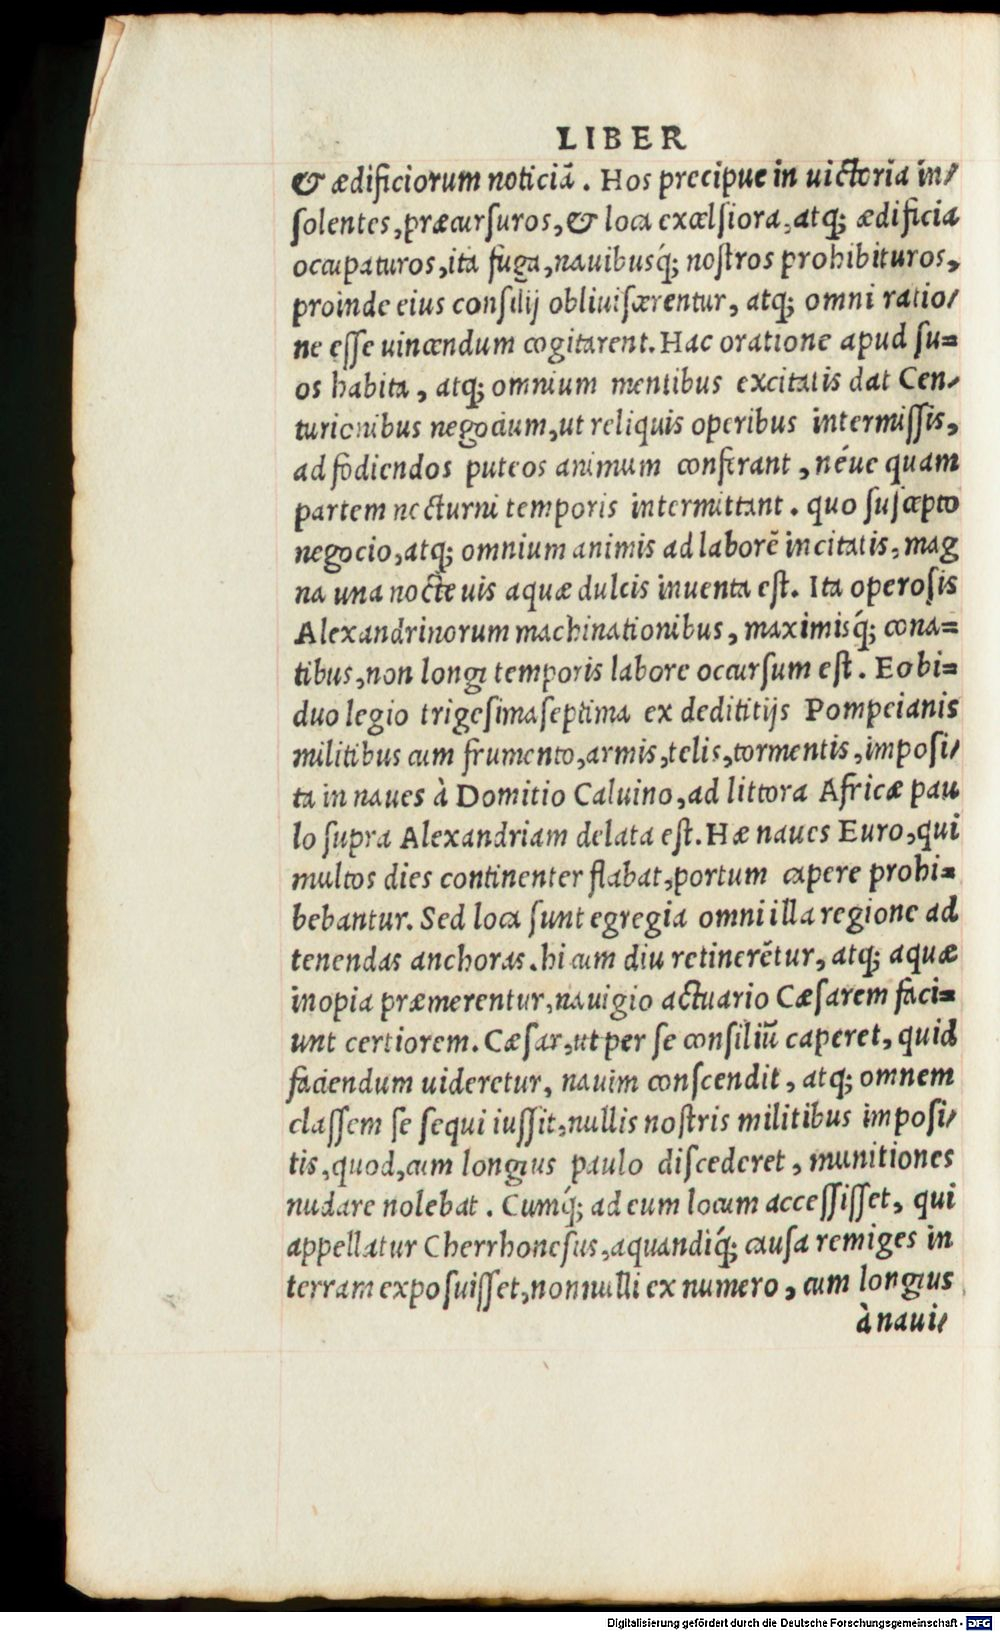 LIBER
& ædificiorum noticiā. Hos precipue in uictoria in/
ſolentes, præcurſuros, & loca excelſiora, atq; ædificia
occupaturos, ita fuga, nauibusq́; noſtros prohibituros,
proinde eius conſilij obliuiſcerentur, atq; omni ratio/
ne eſſe uincendum cogitarent. Hac oratione apud ſu=
os habita, atq; omnium mentibus excitatis dat Cen/
turionibus negocium, ut reliquis operibus intermiſſis,
ad fodiendos puteos animum conferant, néue quam
partem nocturni temporis intermittant. quo ſuſcepto
negocio, atq; omnium animis ad laborē incitatis, mag
na una nocte uis aquæ dulcis inuenta eſt. Ita operoſis
Alexandrinorum machinationibus, maximisq́; cona=
tibus, non longi temporis labore occurſum eſt. Eo bi=
duo legio trigeſimaſeptima ex dedititijs Pompeianis
militibus cum frumento, armis, telis, tormentis, impoſi/
ta in naues à Domitio Caluino, ad littora Africæ pau
lo ſupra Alexandriam delata eſt. Hæ naues Euro, qui
multos dies continenter flabat, portum capere prohi=
bebantur. Sed loca ſunt egregia omni illa regione ad
tenendas anchoras. hi cum diu retinerētur, atq; aquæ
inopia præmerentur, nauigio actuario Cæſarem faci=
unt certiorem. Cæſar, ut per ſe conſiliū caperet, quid
faciendum uideretur, nauim conſcendit, atq; omnem
claſſem ſe ſequi iuſſit, nullis noſtris militibus impoſi/
tis, quod, cum longius paulo diſcederet, munitiones
nudare nolebat. Cumq́; ad eum locum acceſſiſſet, qui
appellatur Cherrhoneſus, aquandiq́; cauſa remiges in
terram expoſuiſſet, nonnulli ex numero, cum longius
à naui/
Digitalisierung gefördert durch die Deutsche Forschungsgemeinschaft - DFG